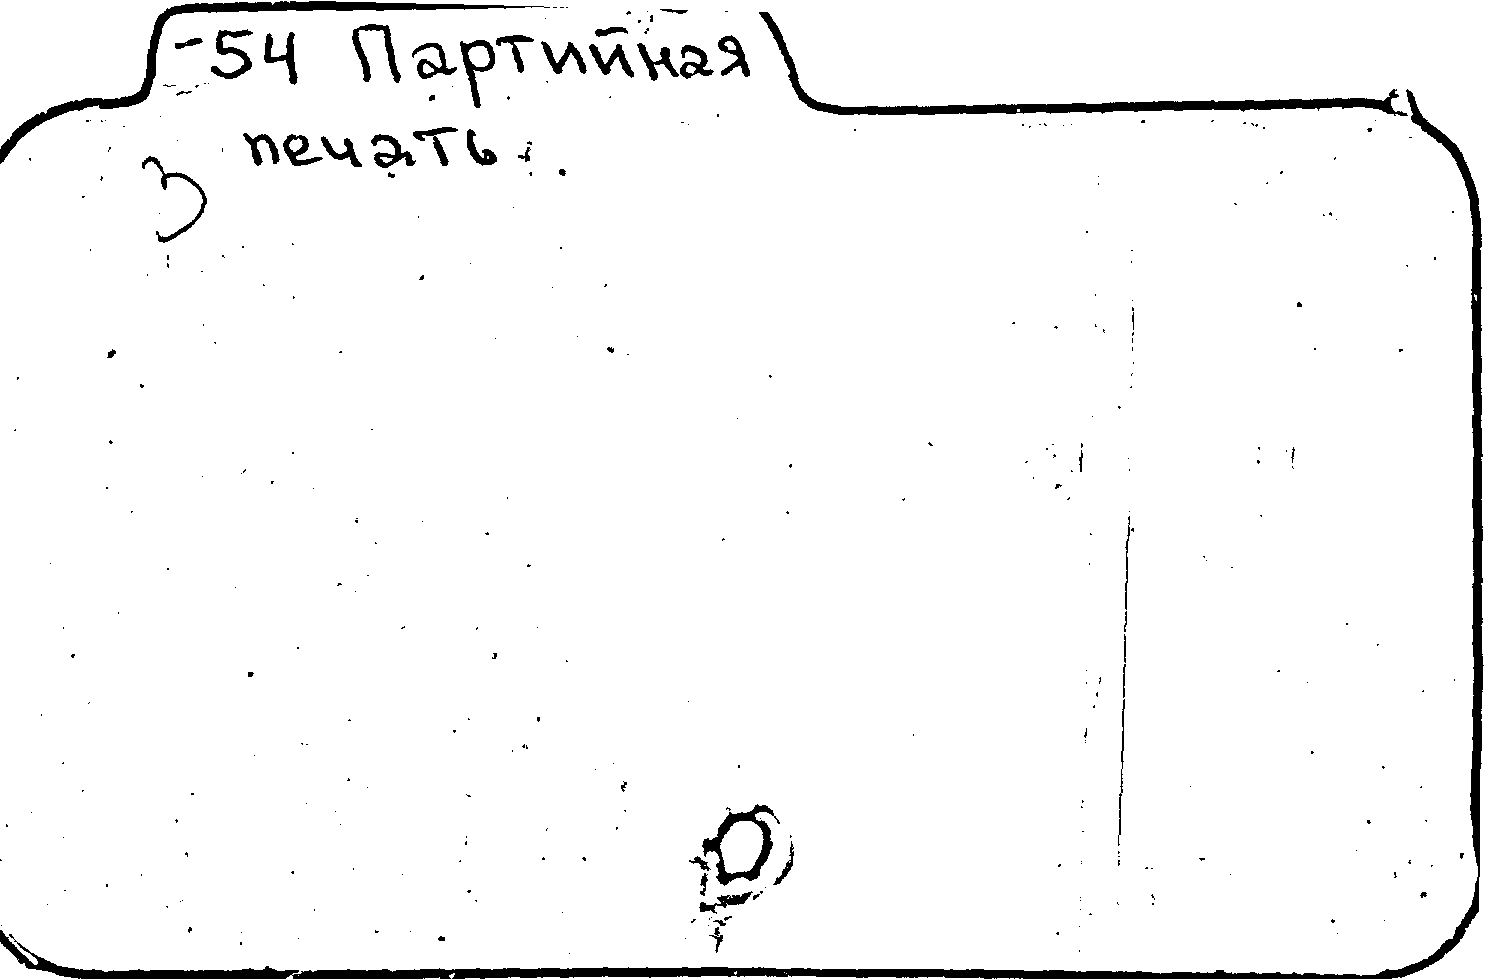 -54 Партийная
печать
3